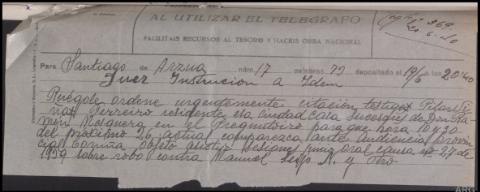 AL UTILIZAR EL TELEGRAFO
FACILITAIS RECURSOS AL TESORO Y HACEIS OBRA NACIONAL
Para Santiago de Arzua núm 17 palabras 79 depositado el 19/6 a las 20'40
Juez Instrucion a Idem
Ruégole ordene urgentemente citación testigo Pilar
Ferreiro residente esa ciudad casa Sucesores de Don Ra
món en el para que hora 10 y 30
del próximo 26 actual comparezca ante Audiencia Provin
cial Coruña objeto asistir sesiones juicio oral causa nº 27 de
1939 sobre robo contra Manuel N. y otro